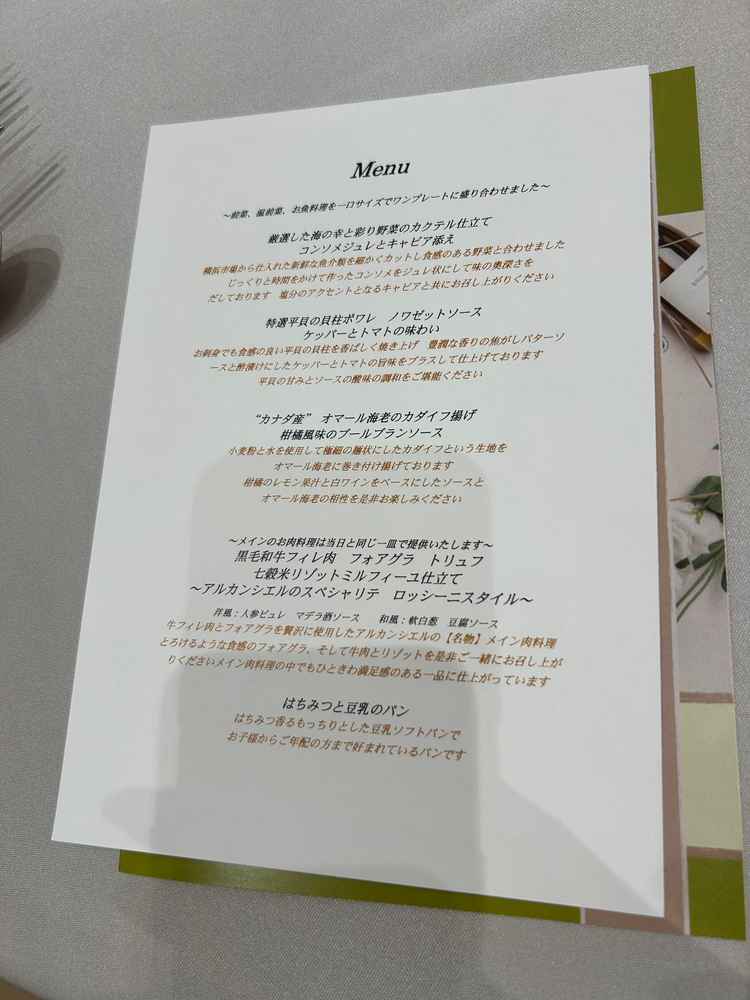 Menu
～前菜、温前菜、お魚料理を一口サイズでワンプレートに盛り合わせました～
厳選した海の幸と彩り野菜のカクテル仕立て
コンソメジュレとキャビア添え
横浜市場から仕入れた新鮮な魚介類を細かくカットし食感のある野菜と合わせました
じっくりと時間をかけて作ったコンソメをジュレ状にして味の奥深さを
だしております　塩分のアクセントとなるキャビアと共にお召し上がりください
特選平貝の貝柱ポワレ　ノワゼットソース
ケッパーとトマトの味わい
お刺身でも食感の良い平貝の貝柱を香ばしく焼き上げ　豊潤な香りの焦がしバターソ
ースと酢漬けにしたケッパーとトマトの旨味をプラスして仕上げております
平貝の甘みとソースの酸味の調和をご堪能ください
“カナダ産”　オマール海老のカダイフ揚げ
柑橘風味のブールブランソース
小麦粉と水を使用して極細の麺状にしたカダイフという生地を
オマール海老に巻き付け揚げております
柑橘のレモン果汁と白ワインをベースにしたソースと
オマール海老の相性を是非お楽しみください
～メインのお肉料理は当日と同じ一皿で提供いたします～
黒毛和牛フィレ肉　フォアグラ　トリュフ
七穀米リゾットミルフィーユ仕立て
～アルカンシエルのスペシャリテ　ロッシーニスタイル～
洋風：人参ピュレ　マデラ酒ソース　　和風：軟白葱　豆腐ソース
牛フィレ肉とフォアグラを贅沢に使用したアルカンシエルの【名物】メイン肉料理
とろけるような食感のフォアグラ、そして牛肉とリゾットを是非ご一緒にお召し上が
りくださいメイン肉料理の中でもひときわ満足感のある一品に仕上がっています
はちみつと豆乳のパン
はちみつ香るもっちりとした豆乳ソフトパンで
お子様からご年配の方まで好まれているパンです